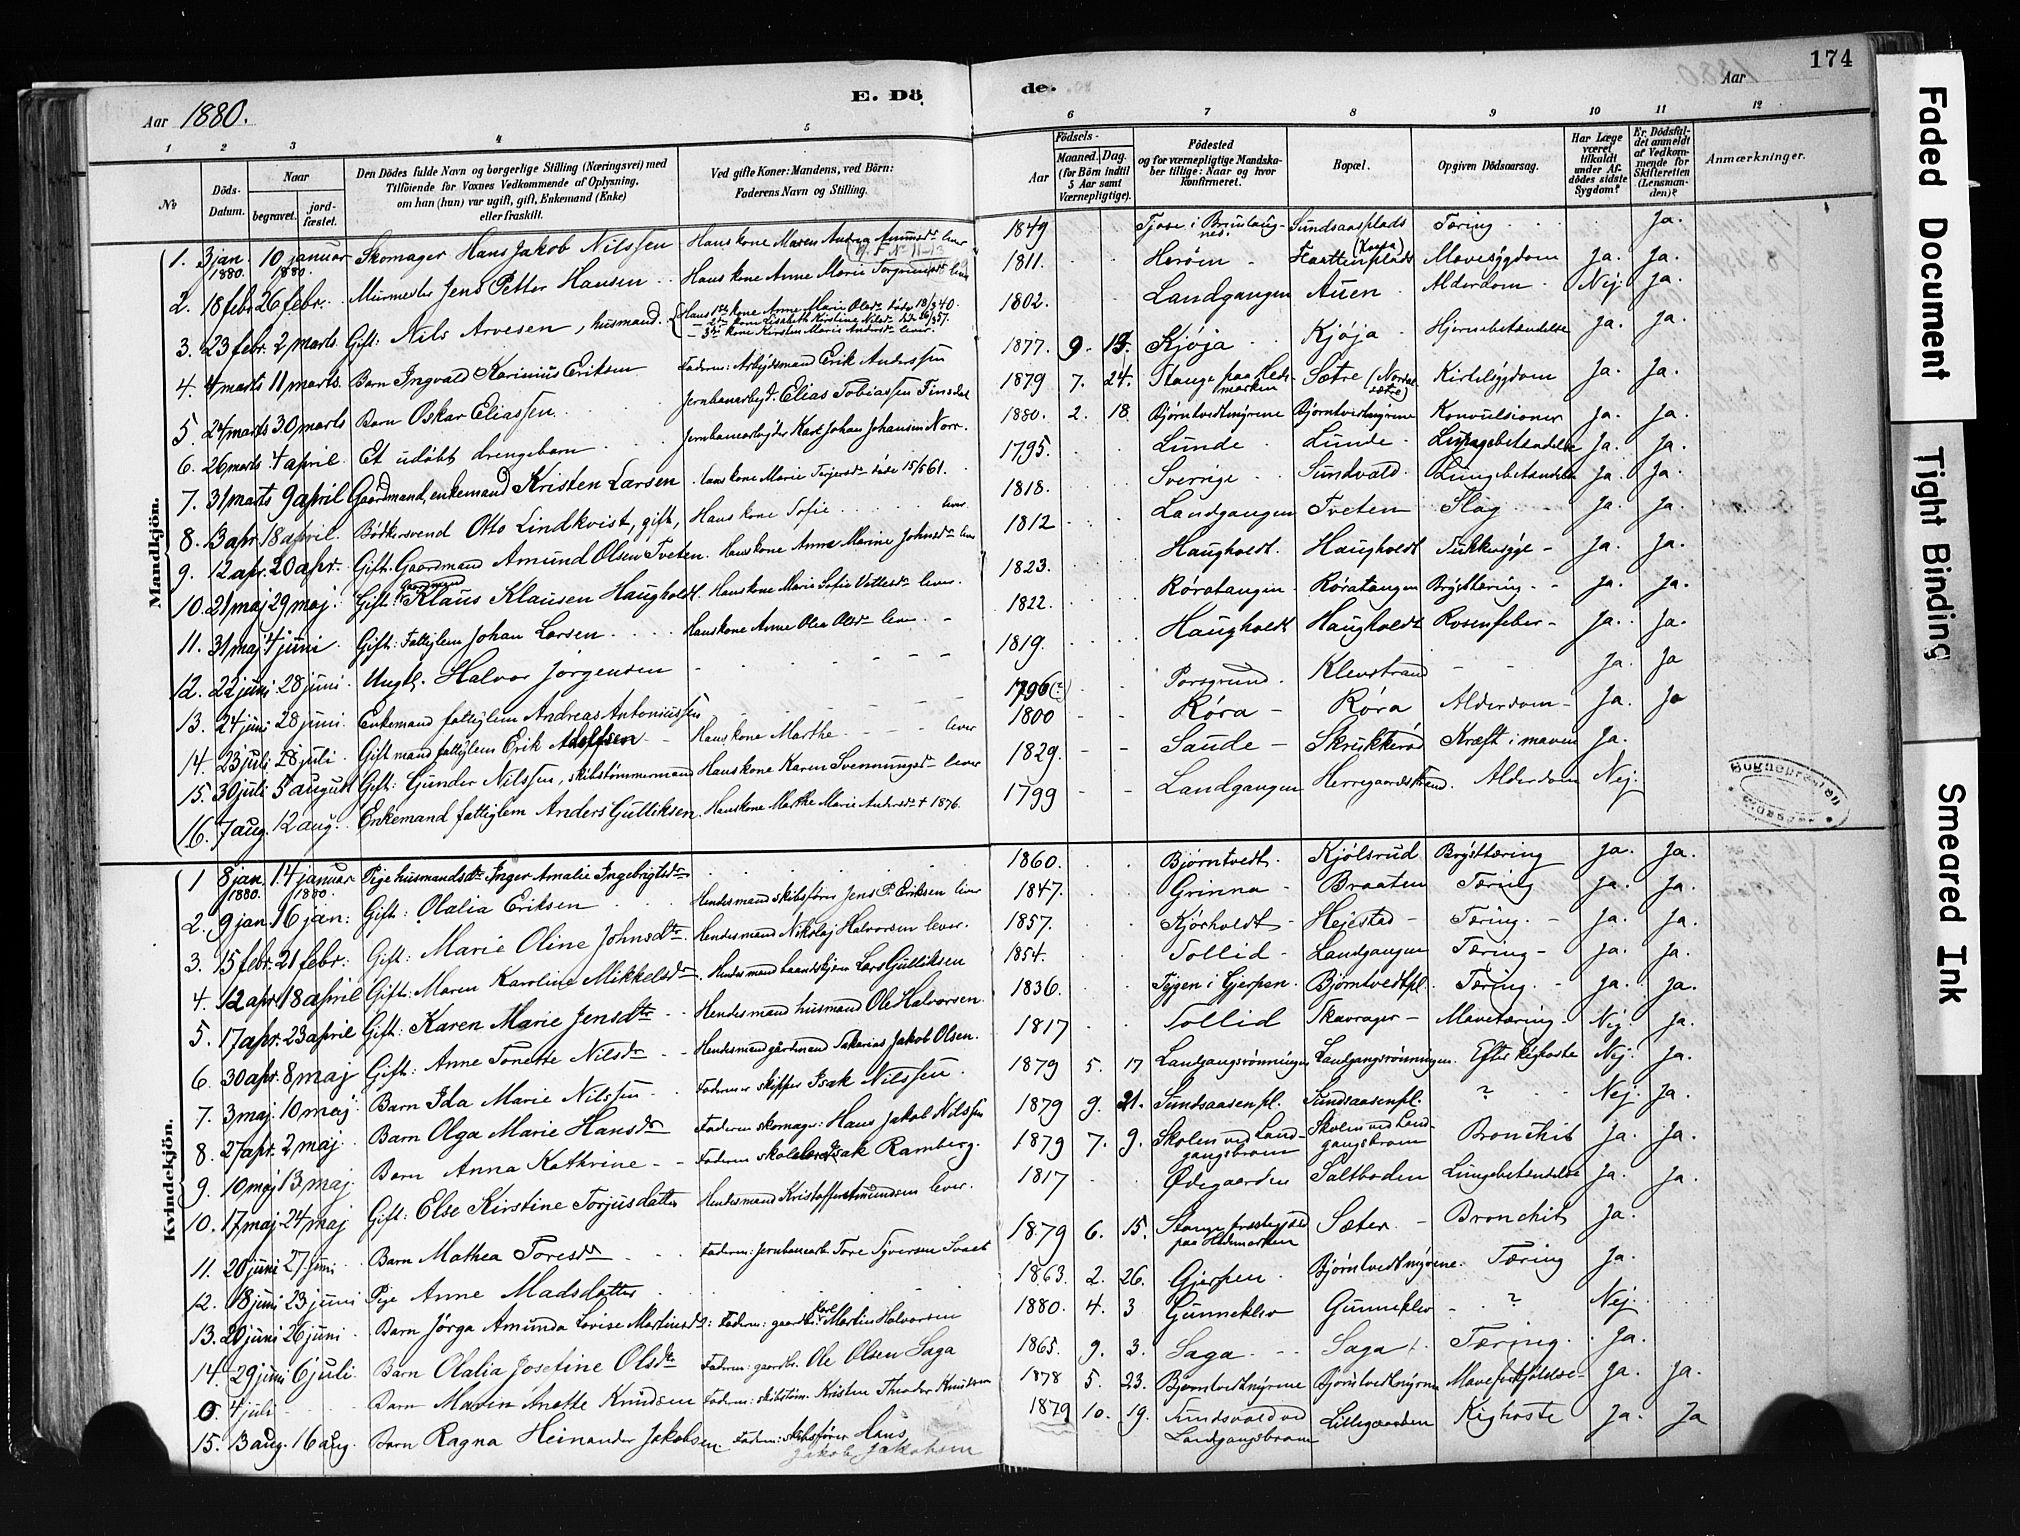 174
Aar 1880.
E. Dö
de.
Aar
1 2 3 4 5 6 7 8 9 10 11 12
No
Döds-Datum.
Naar
begravet.
jord-fæstet.
Den Dödes fulde Navn og borgerlige Stilling (Næringsvei) med
Tilföiende for Voxnes Vedkommende af Oplysning,
om han (hun) var ugift, gift, Enkemand (Enke)
eller fraskilt.
Ved gifte Koner: Mandens, ved Börn:
Faderens Navn og Stilling.
Födsels-
Aar
Maaned. Dag.
(for Börn indtil 5 Aar samt Værnepligtige).
Födested
og for værnepligtige Mandska-
ber tillige: Naar og hvor
konfirmeret.
Bopæl.
Opgiven Dödsaarsag.
Har Læge været tilkaldt under Af-dödes sidste Sygdom?
Er Dödsfal-det anmeldt af Vedkom-mende for Skifteretten (Lensman-den)?
Anmærkninger.
Mandkjön.
1. 3 jan 1880. 10 januar 1880. Skomager Hans Jakob Nilssen Hans kone Maren Andrea lever 1849 Tjose i Brunlang-nes. Sundsaasplads Tæring Ja.
2. 18 febr 26 febr. Murmester Jens Petter Hansen Hans kone Anne Marie lever 1811. Herøen Mavesygdom Ja. Ja.
3. 23 febr. 2 marts. Gift: Nils Arvesen, husmand. 1802. Landgangen Auen Alderdom Nej. Ja.
4. 4 marts 11 marts. Barn Ingvald Karinius Eriksen Faderen: Arbejdsmand Erik Anderssen 1877. 9. 13. Kjøja Kjøja Hjernebetændelse Ja. Ja.
5. 24 marts 30 marts Barn Oskar Eliassen Jernbanearbejd. Elias Tobiassen 1879 7. 24. Stange paa Hede-marken Sætre Kirtelsygdom Ja. Ja.
6. 26 marts 4 april. Et udøbt drengebarn Jernbanearbejder Karl Johan Johansen Norr. 1880. 2. 18. Bjørntvedtmyrene Bjørntvedtmyrene Konvulsioner Ja. Ja.
7. 31 marts 9 april Gaardmand, enkemand Kristen Larsen Hans kone Marie Terjersdr. døde 15/5 61. 1795. Lunde Lunde Lungebetændelse Ja. Ja.
8. 3 apr. 18 april. Bødkersvend Otto Lindkvist, gift, Hans kone Sofie lever 1818. Sverige Sundvald. Lungebetændelse Ja. Ja.
9. 12 apr. 20 apr. Gift: Gaardmand Amund Olsen Tveten. Hans kone Anne Marine Johnsdr. lever 1812 Landgangen Tveten Slag Ja. Ja.
10. 21 maj 29 maj. Gift: gaardmand Klaus Klausen Haugholdt. Hans kone Marie Sofie lever. 1823. Haugholdt. Haugholdt Sukkersyge Ja. Ja.
11. 31 maj 4 juni Gift: Fattiglem Johan Larsen Hans kone Anne Olea Olsdr. lever 1822. Røratangen Røratangen Brysttæring Ja. Ja.
12. 22 juni 28 juni. Ungk. Halvor Jørgensen 1819. Haugholdt Haugholdt Rosenfeber Ja. Ja.
13. 24 juni 28 juni. Enkemand fattiglem Andreas Antoniussen 1796(?) Porsgrund. Klevstrand Ja. Ja
14. 23 juli 28 juli. Gift mand fattiglem Erik Adolfsen Hans kone Marthe lever 1800 Røra Røra Alderdom Ja. Ja
15. 30 juli 5 august Gift: Gunder Nilssen, skibstømmermand Hans kone Karen Svenningsdr. lever 1829. Saude Skrukkerød Kræft i maven Ja.
16. 7 aug. 12 aug. Enkemand fattiglem Anders Gulliksen. Hans kone Marthe Marie Andersdr. + 1876. 1799 Landgangen Herregaardsstrand. Alderdom Nej.
Kvindekjön.
1 8 jan. 1880. 14 januar 1880. Pige husmandsdr. Inger Amalie Ingebrigtsdr 1860. Bjørntvedt. Kjølsrud Brysttæring Ja. Ja.
2. 9 jan. 16 jan: Gift: Olalia Eriksen Hendes mand skibsfører Jens P. Eriksen lever 1847. Grinna Braaten Tæring Ja. Ja.
3. 15 febr. 21 febr: Gift: Marie Oline Johnsdtr. Hendes mand Nikolaj Halvorsen lever. 1857. Kjørholdt Hejestad Tæring. Ja. Ja.
4. 12 apr. 18 april Gift: Maren Karoline Mikkelsdr. Hendes mand Lars Gulliksen 1854. Tollid Landgangen Tæring Ja. Ja.
5. 17 apr. 23 april Gift: Karen Marie Jensdtr Hendes mand husmand Ole Halvorsen. 1836. i Gjerpen. Bjørntvedtpl. Tæring. Ja. Ja.
6. 30 apr. 8 maj Gift: Anne Tonette Nilsdr Hendes mand gårdmand Sakarias Jakob Olsen. 1817 Tollid Skavrager Mavetæring Nej. Ja.
7. 3 maj. 10 maj. Barn Ida Marie Nilssen Faderen er skipper Isak Nilssen. 1879 5. 17 Landgangsrønningen Landgangsrønningen. Efter kighoste Nej. Ja.
8. 27 apr. 2 maj. Barn Olga Marie Hansdr Faderen skomager: Hans Jakob Nilssen 1879 9. 21. Sundsaasenpl. Sundsaasenpl. ? Nej. Ja.
9. 10 maj 13 maj. Barn Anna Kathrine Faderen Isak Ramberg. 1879 7. 9. Skolen ved Land-gangsbroen Skolen ved Land-gangsbroen Bronchit Ja. Ja.
10. 17 maj. 24 maj Gift: Else Kirstine Torjusdatter Hendes mand Kristoffer Amundsen lever. 1817 Ødegaarden Saltboden Lungebetændelse Ja. Ja.
11. 20 juni 27. juni Barn Mathea Toresdr Faderen: Jernbanearb. Tore 1879 6. 15. Stange præstegjeld paa Hedemarken Sæter Bronchit Ja.
12. 18 juni 23 juni Pige Anne Madsdatter 1863. 2. 26. Gjerpen Bjørntvedtmyrene. Tæring Ja.
13. 20 juni 26 juni. Barn Jørga Amunda Lovise Martinsdr: Faderen: gaardbr. Karl Martin Halvorsen 1880. 4. 3 Gunneklev Gunneklev ? Nej.
14. 29 juni 6 juli. Barn Olalia Josefine Olsdtr Faderen: gaardbr. Ole Olsen Saga 1865. 9. 3. Saga Saga Tæring. Ja.
0. 4 juli Barn Maren Anette Knudsen Faderen: skibstøm. Kristen Theodor Knudsen 1878 5. 23. Bjørntvedtmyrene Bjørntvedtmyren Ja. Ja.
15. 13 aug. 16 aug. Barn Ragna Heinander Jakobsen Faderen: skibsfører Hans Jakob Jakobsen 1879 10. 19. Sundsvald ved Landgangsbroen Lillegaarden Kighoste Ja. Ja
Faded Document
Tight Binding
Smeared Ink